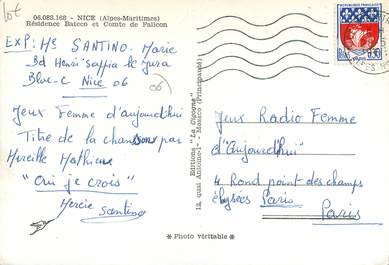 lot
06.088.168 - NICE (Alpes-Maritimes)
Résidence Batéco et Comte de Falicon
EXP: Me SANTINO. Marie
Bd Henri Sappia le Jura
Bloc-C Nice 06
06
Jeux Femme d'aujourd'hui
Titre de la chanson par
Mireille Mathieu
"Oui je crois"
Mercie Santino
Editions "La Cigogne"
12, quai Antoine-1er - Monaco (Principauté)
* Photo véritable *
REPUBLIQUE FRANCAISE
0,30
Jeux Radio Femme
d'"Aujourd'hui"
4 Rond point des champs
élysées Paris
Paris